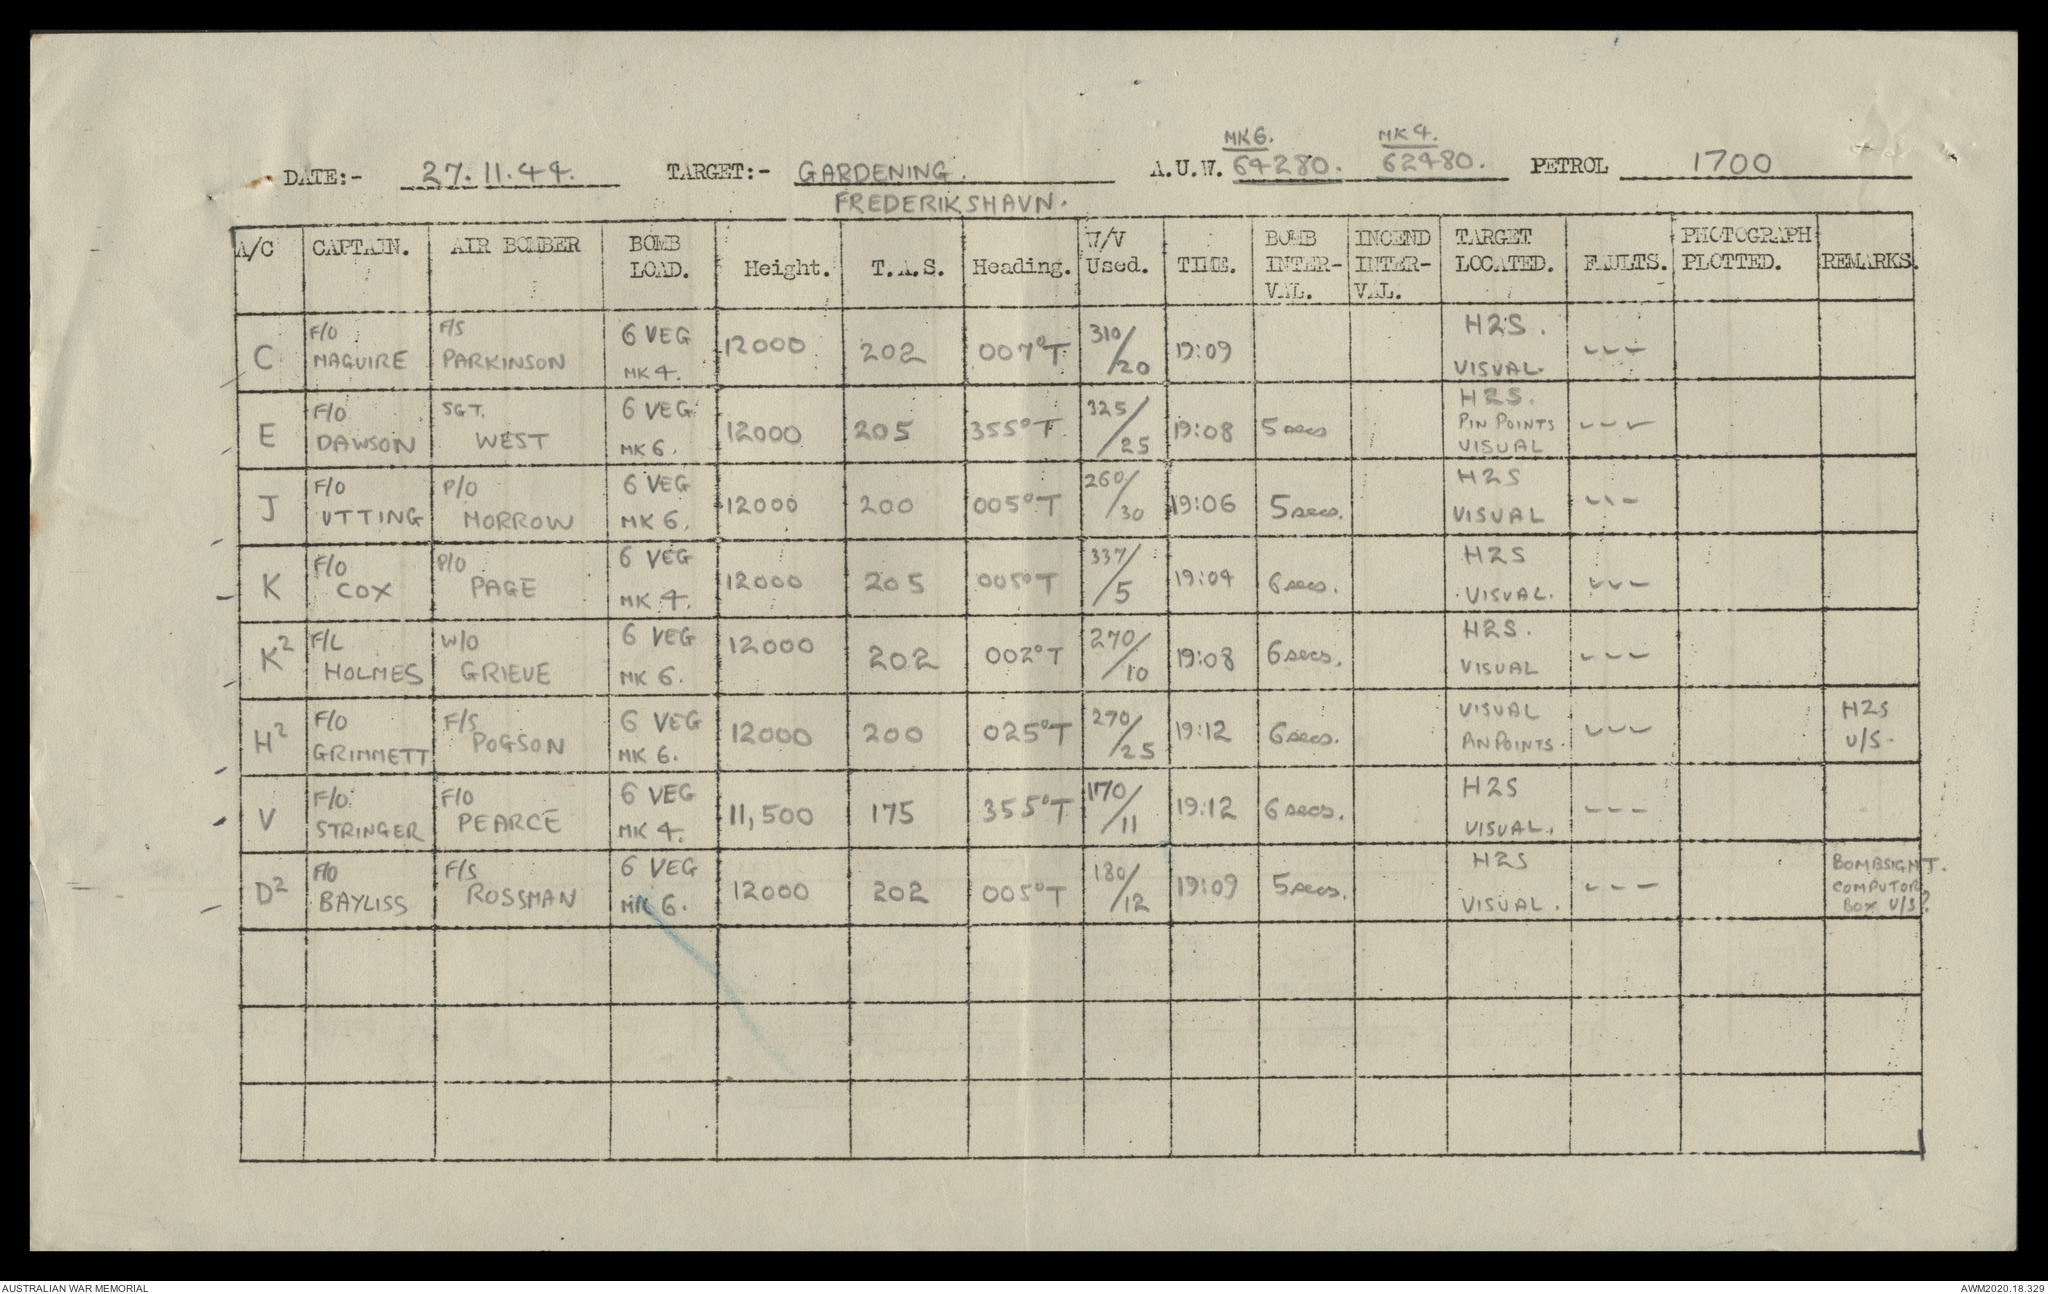 MK 6. MK 4.
DATE:- 27.11.44. TARGET:- GARDENING. A.U.W. 64280. 62480. PETROL 1700
FREDERIKSHAVN.
A/C CAPTAIN. AIR BOMBER BOMB LOAD. Height. T.A.S. Heading. W/V Used. TIME. BOMB INTER-VAL. INCEND INTER-VAL. TARGET LOCATED. FAULTS. PHOTOGRAPH PLOTTED. REMARKS.
C F/O MAGUIRE F/S PARKINSON 6 VEG MK 4. 12000 202 007°T 310/20 19:09 H2S. VISUAL. - - -
E F/O DAWSON SGT. WEST 6 VEG MK 6. 12000 205 355°T 325/25 19:08 5 secs H2S. PIN POINTS VISUAL - - -
J F/O UTTING P/O MORROW 6 VEG MK 6. 12000 200 005°T 260/30 19:06 5 secs. H2S VISUAL - - -
K F/O COX P/O PAGE 6 VEG MK 4. 12000 205 005°T 337/5 19:04 6 secs. H2S VISUAL. - - -
K2 F/L HOLMES W/O GRIEVE 6 VEG MK 6. 12000 202 002°T 270/10 19:08 6 secs. H2S. VISUAL - - -
H2 F/O GRIMMETT F/S POGSON 6 VEG MK 6. 12000 200 025°T 270/25 19:12 6 secs. VISUAL POINTS. - - - H2S U/S.
V F/O STRINGER F/O PEARCE 6 VEG MK 4. 11,500 175 355°T 170/11 19:12 6 secs. H2S VISUAL. - - -
D2 F/O BAYLISS F/S ROSSMAN 6 VEG MK 6. 12000 202 005°T 180/12 19:09 5 secs. H2S VISUAL. - - - BOMBSIGHT. COMPUTOR BOX U/S?
AUSTRALIAN WAR MEMORIAL AWM2020.18.329